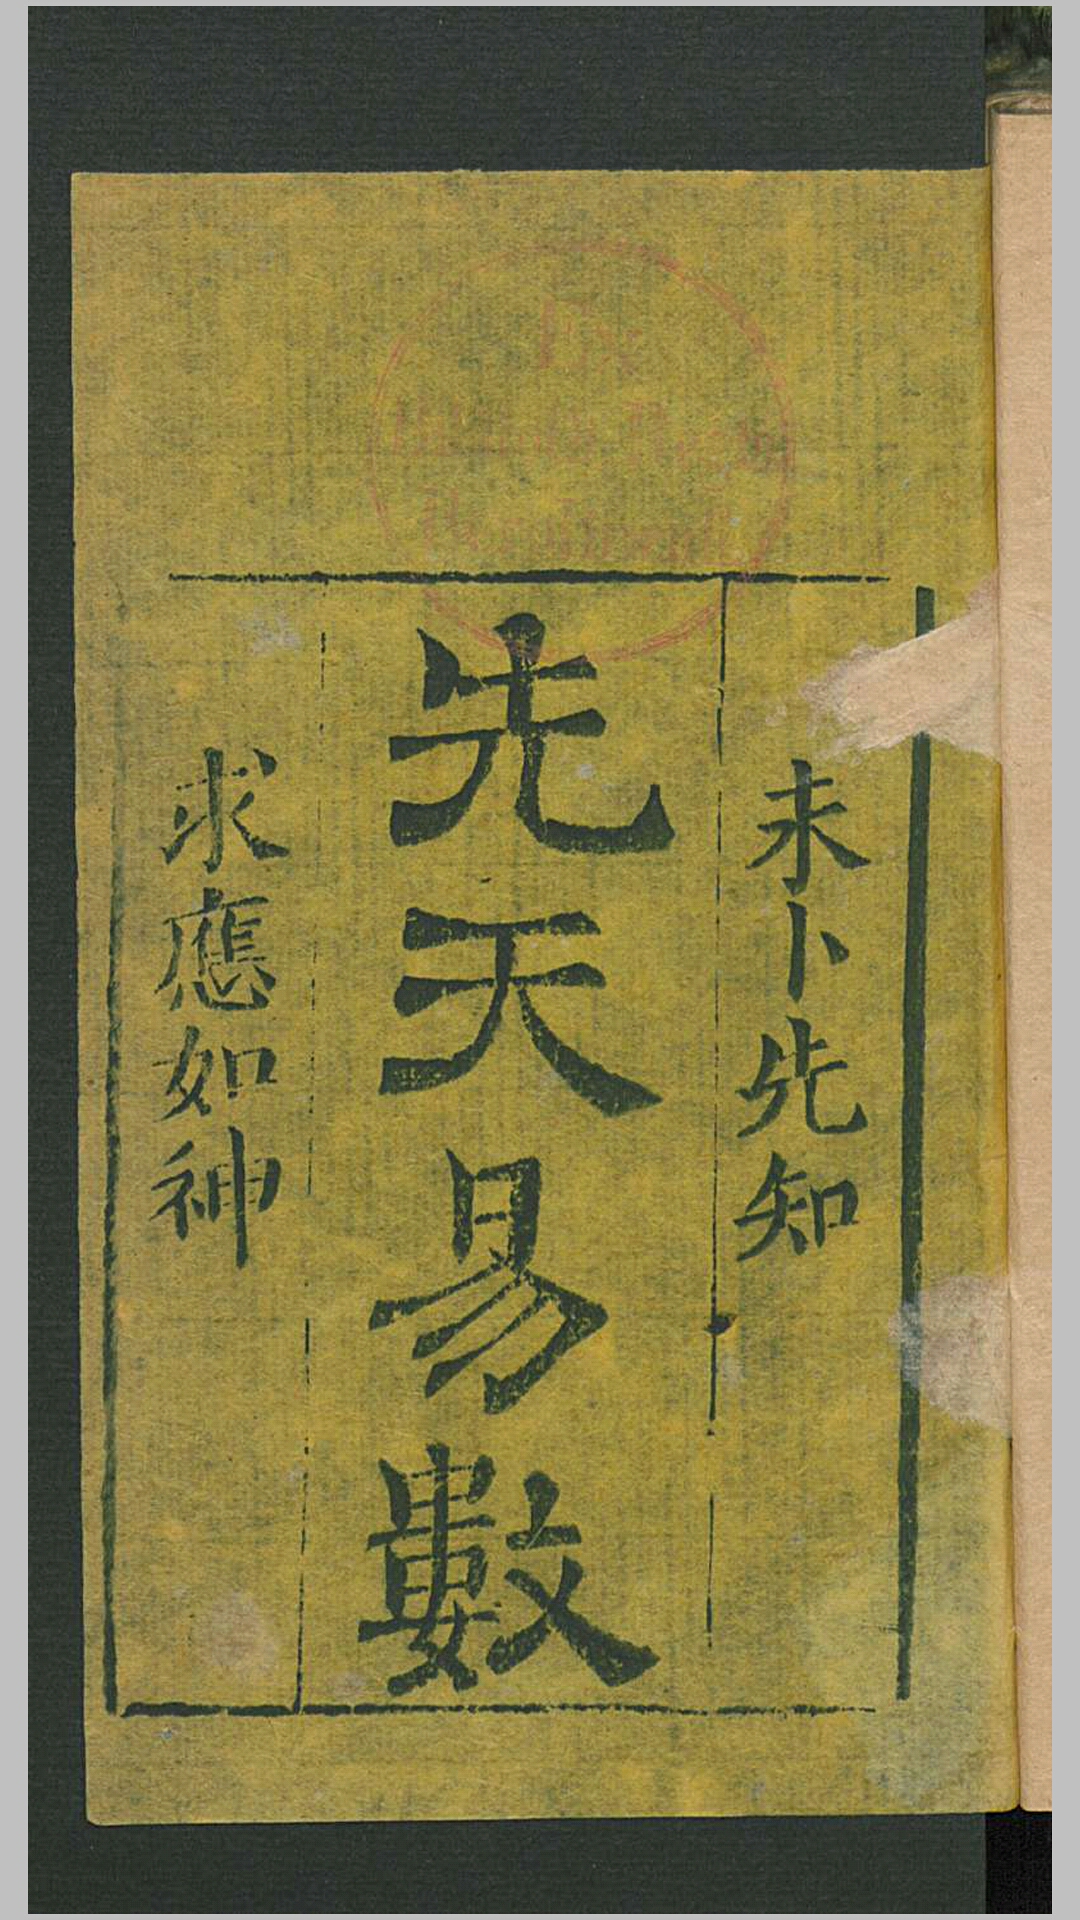 未卜先知
先天易數
求應如神
Ex